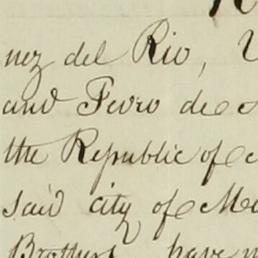 nez del Rio,
and Pedro de
the Republic of
said city of Me
Brothers have